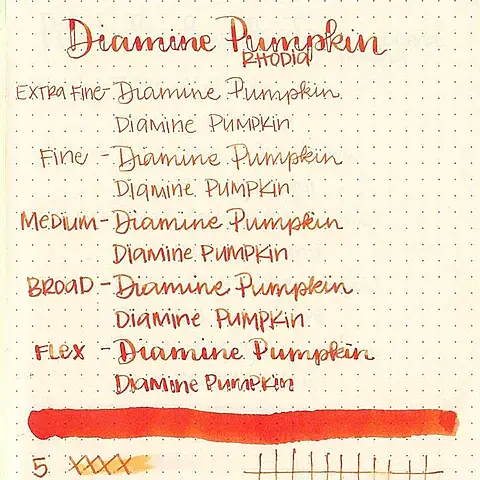 Diamine Pumpkin
RHODIA
EXTRA FINE - Diamine Pumpkin
Diamine Pumpkin
Fine - Diamine Pumpkin
Diamine Pumpkin
Medium - Diamine Pumpkin
Diamine Pumpkin
BROAD - Diamine Pumpkin
Diamine Pumpkin
FLEX - Diamine Pumpkin
Diamine Pumpkin
5 XXXX